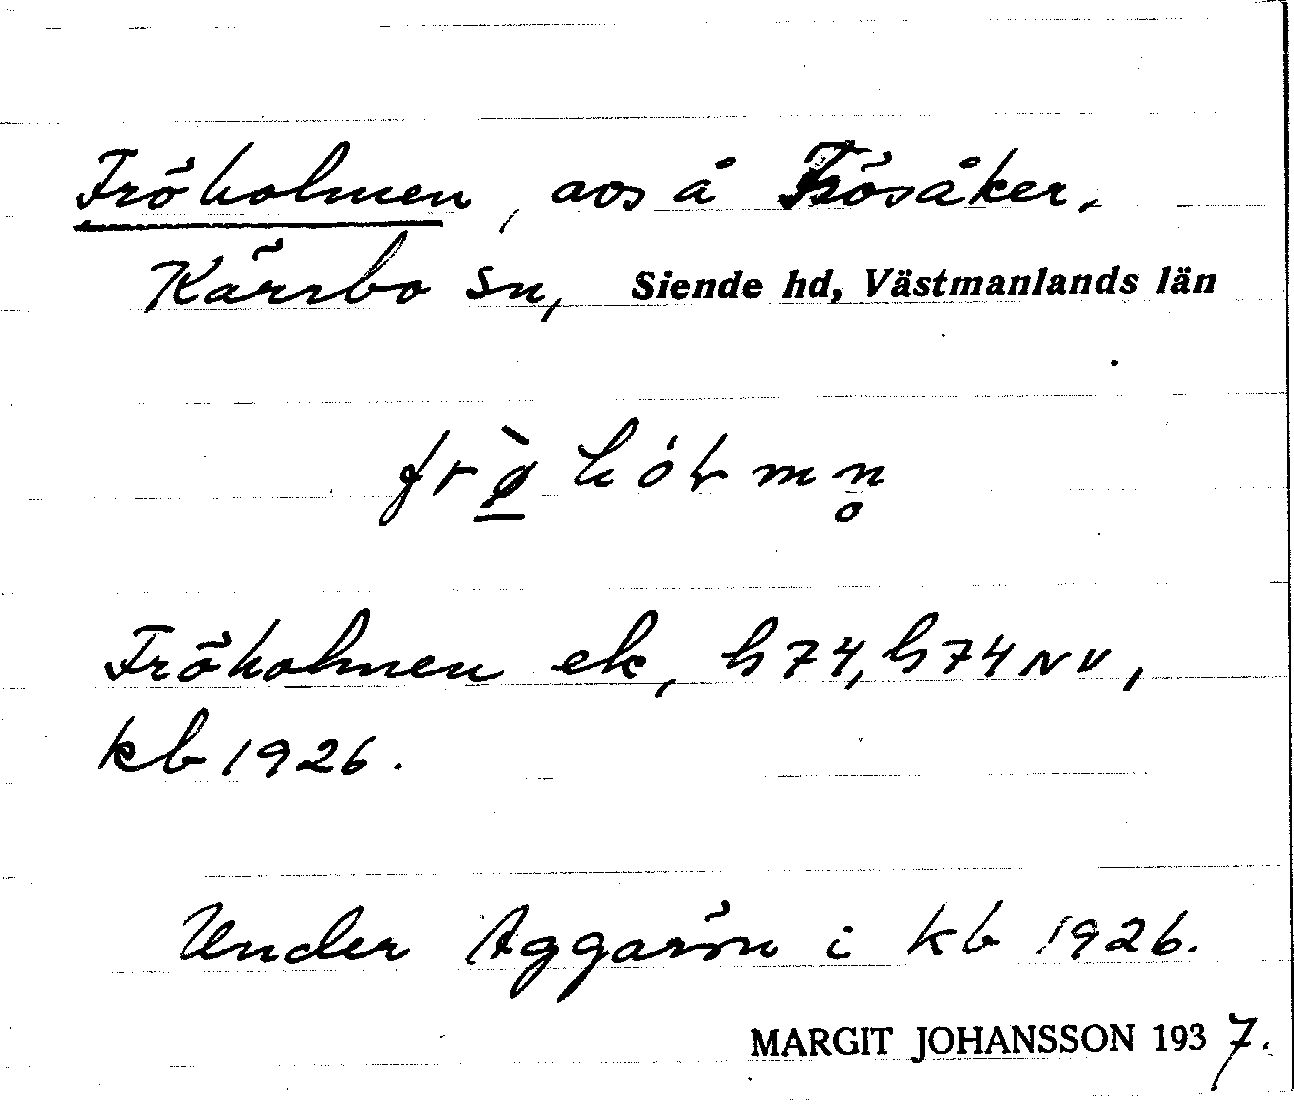 Fröholmen, avs å Frösåker,
Kärrbo sn, Siende hd, Västmanlands län
frø̀hólmn̥
Fröholmen ek, h74, h74NV,
kb 1926.
Under Aggarön i kb 1926.
MARGIT JOHANSSON 1937.